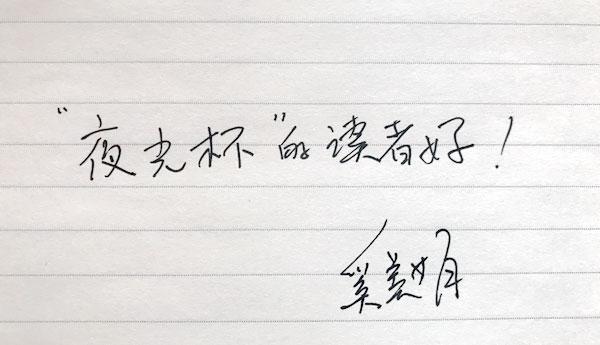 “夜光杯”的读者好！
奚美娟